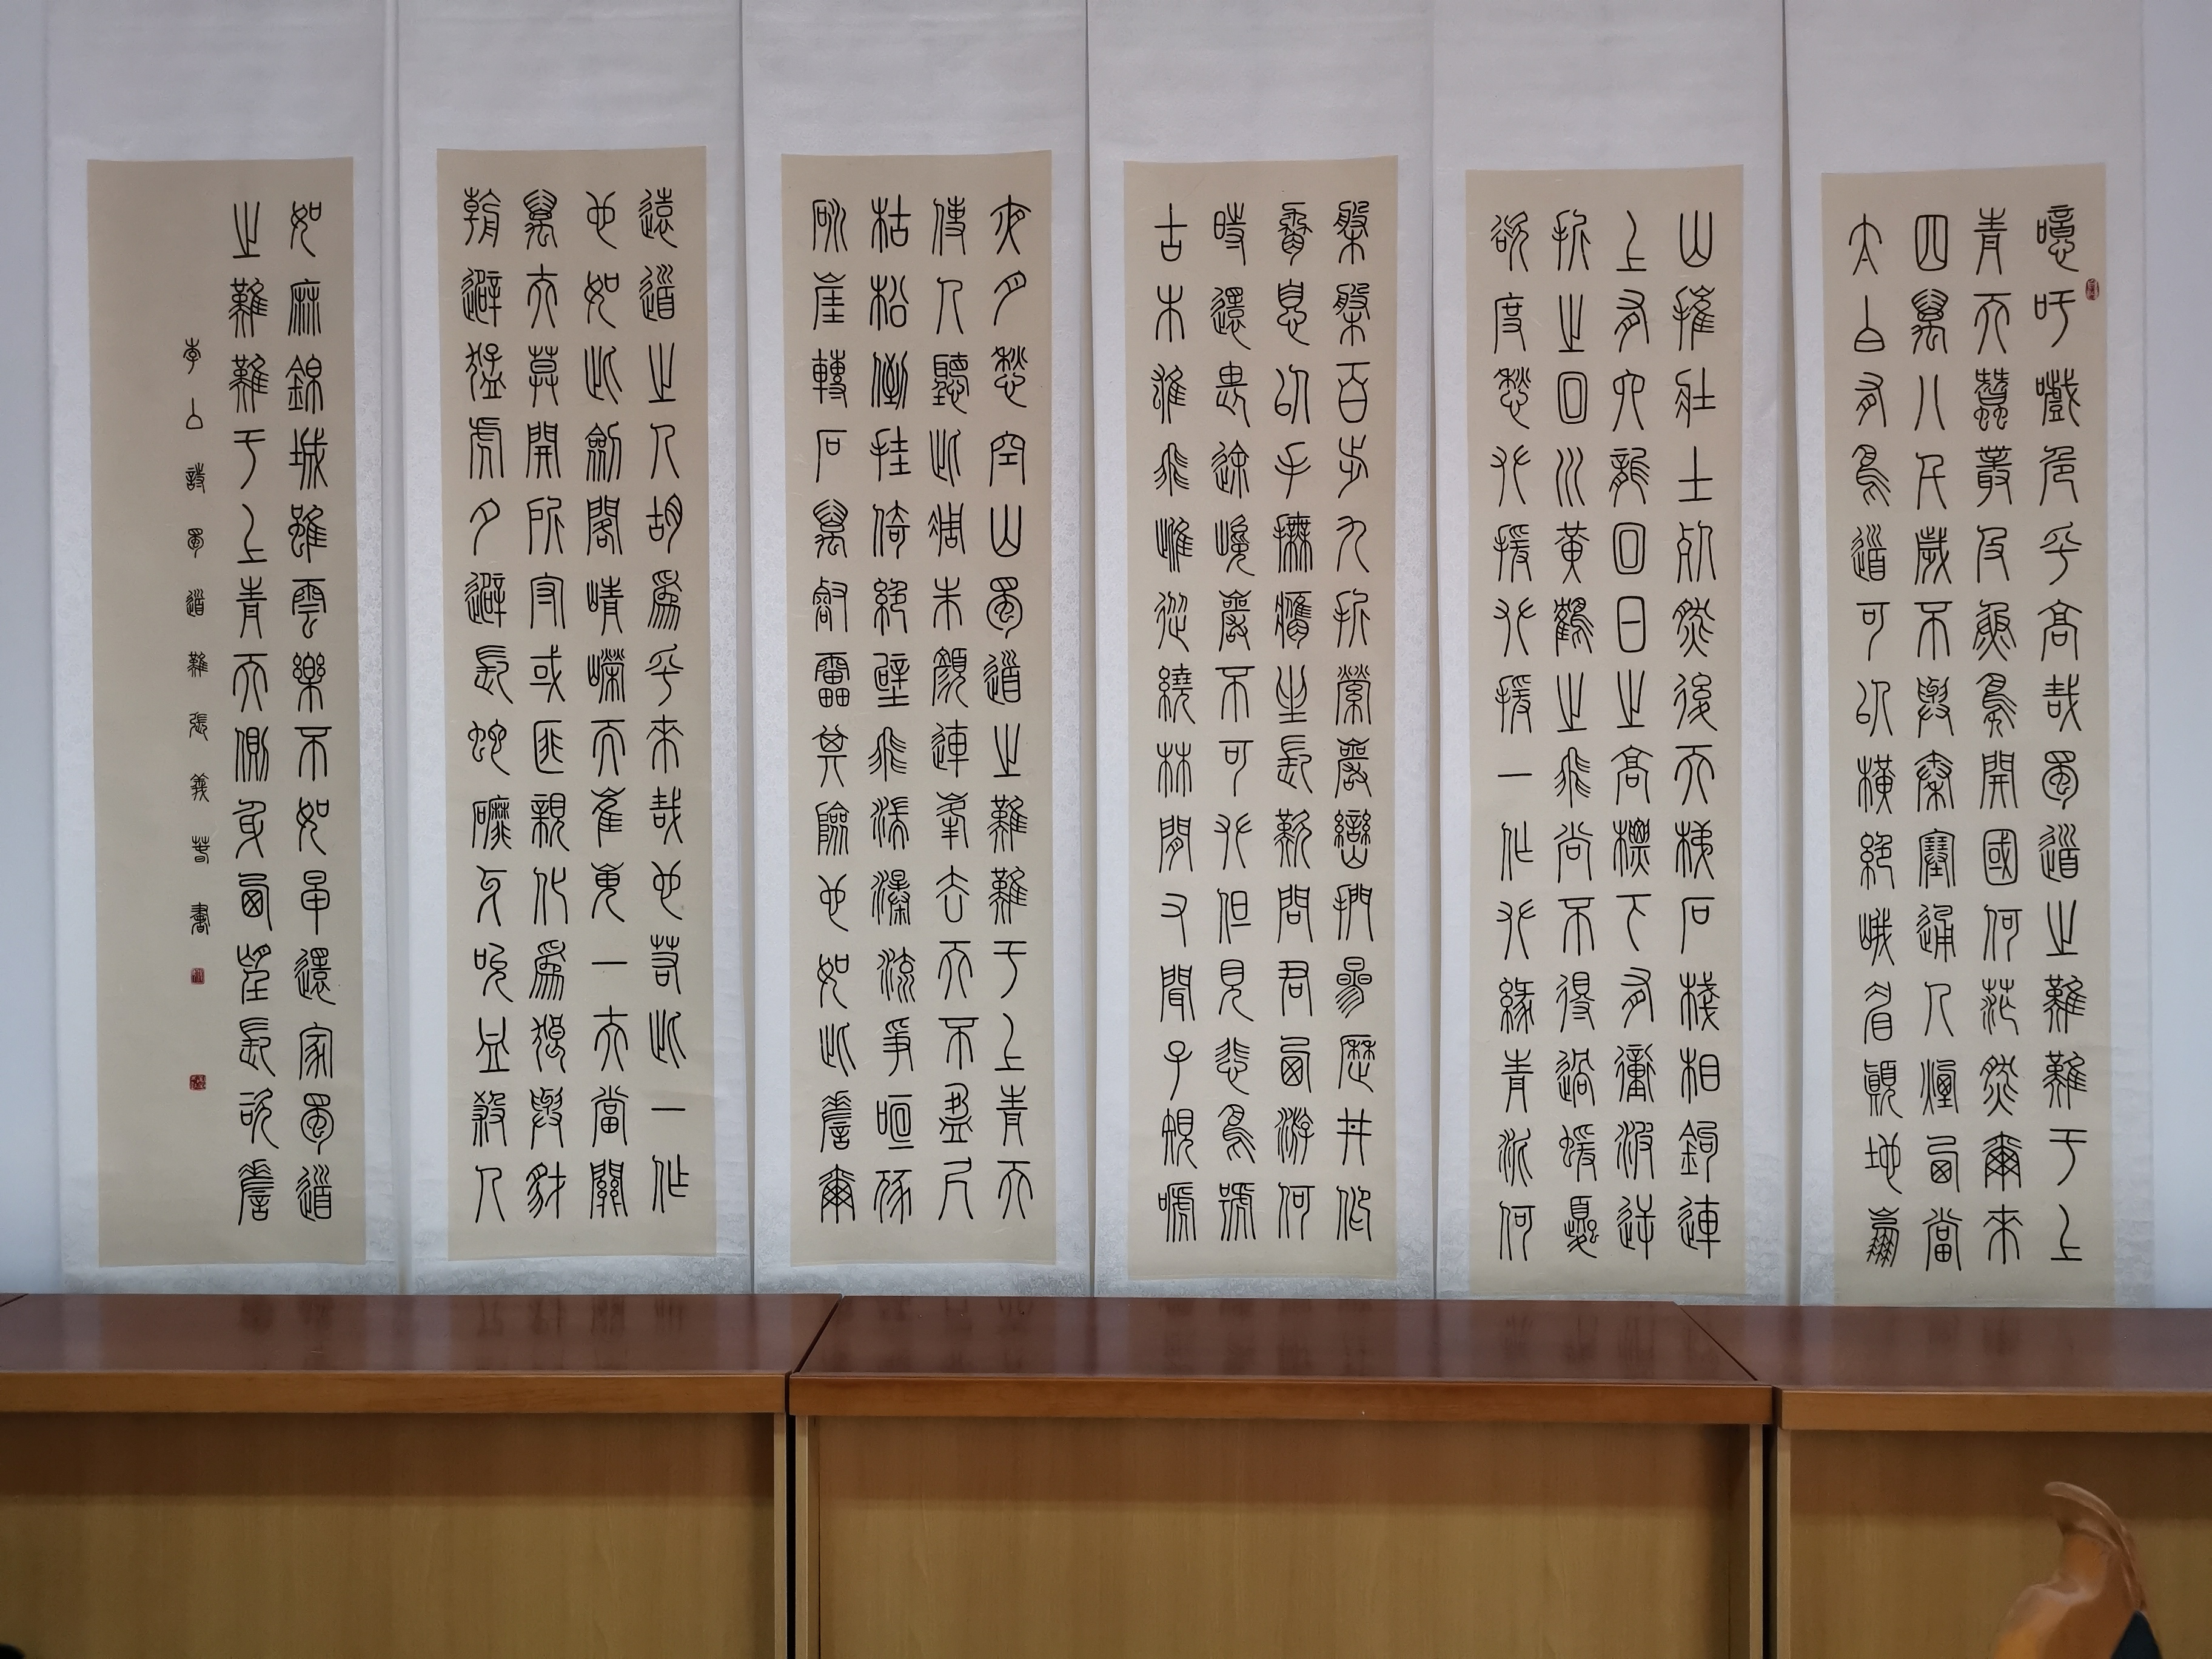 噫吁嚱危乎高哉蜀道之難難于上
青天蠶叢及魚鳧開國何茫然爾來
四萬八千歲不與秦塞通人煙西當
太白有鳥道可以橫絕峨眉巔地崩
山摧壯士死然後天梯石棧相鉤連
上有六龍回日之高標下有衝波逆
折之回川黃鶴之飛尚不得過蝯夒
欲度愁攀援攀援一作攀緣青泥何
盤盤百步九折縈巖巒捫參歷井仰
脅息以手撫膺坐長歎問君西游何
時還畏途巉巖不可攀但見悲鳥號
古木雄飛雌從繞林間又聞子規嗁
夜月愁空山蜀道之難難于上青天
使人聽此凋朱顏連峯去天不盈尺
枯松倒挂倚絕壁飛湍瀑流爭喧豗
砯崖轉石萬壑雷其險也如此嗟爾
遠道之人胡爲乎來哉也若此一作
也如此劍閣崢嶸而崔嵬一夫當關
萬夫莫開所守或匪親化爲狼與豺
朝避猛虎夕避長蛇磨牙吮血殺人
如麻錦城雖雲樂不如早還家蜀道
之難難于上青天側身西望長咨嗟
李白詩蜀道難張義春書